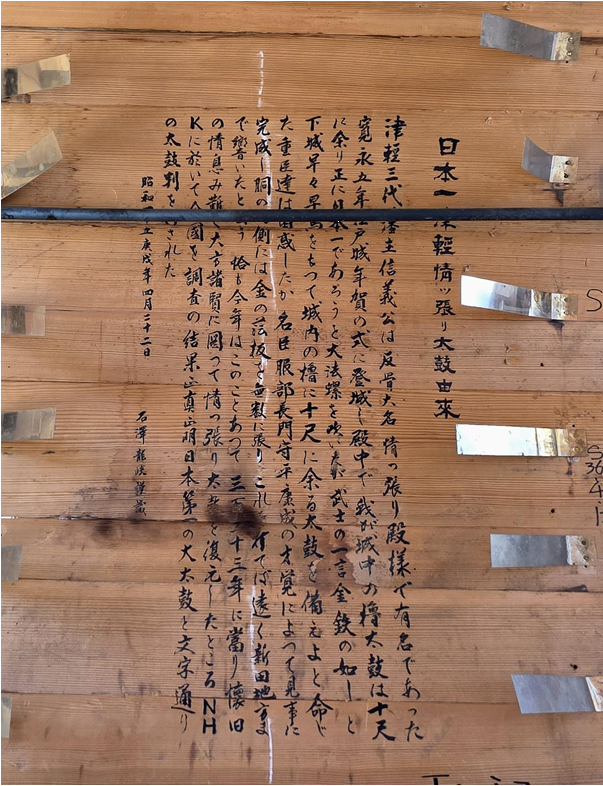 日本一津輕情ッ張り太鼓由來
津輕三代藩主信義公は反骨大名情っ張り殿様で有名であった
寛永五年江戸城年賀の式に登城し殿中で我が城中の櫓太鼓は十尺
に余り正に日本一であろうと大法螺を吹いたが武士の一言金鉄の如しと
下城早々早馬をもつて城内の櫓に十尺に余る太鼓を備えよと命じ
た重臣達は困惑したが名臣服部長門守平康成の才覚によつて見事に
完成し胴の内側には金の箔板を無数に張りこれ打てば遠く新田地方ま
で響いたという 恰も今年はこのことあつて三百 十三年に當り懐旧
の情息み難く大方諸賢に図って情っ張り太鼓を復元したところNH
Kに於いて全國を調査の結果正真正明日本第一の大太鼓と文字通り
の太鼓判を された
昭和 五庚戌年四月二十二日
石澤龍峡謹識
S
S
36
4